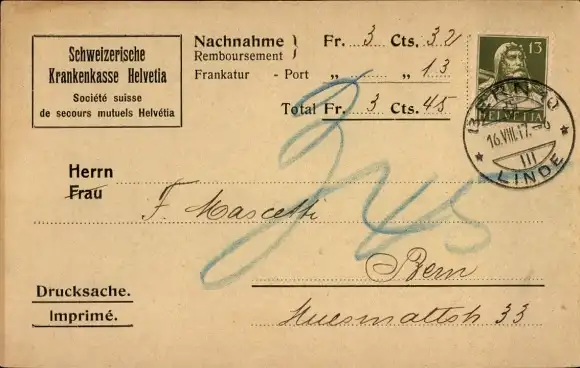 Schweizerische
Krankenkasse Helvetia
Société suisse
de secours mutuels Helvétia
Nachnahme } Fr. 3 Cts. 32
Remboursement
Frankatur - Port „ „ 13
Total Fr. 3 Cts. 45
13
HELVETIA
BERN
16.VIII.17.
III
LINDE
3 45
Herrn
Frau
F. Mascetti
Bern
Drucksache.
Imprimé.
33